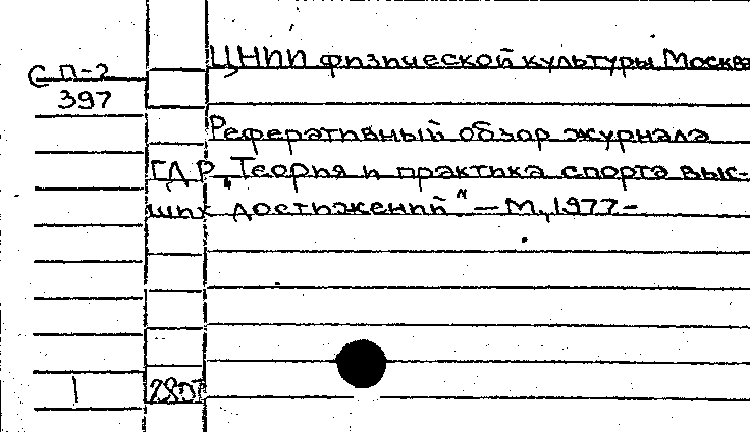 ЦНИИ физической культуры. Москва
С П-2
397
Реферативный обзор журнала
ГДР „Теория и практика спорта выс-
ших достижений" — М., 1977-
1